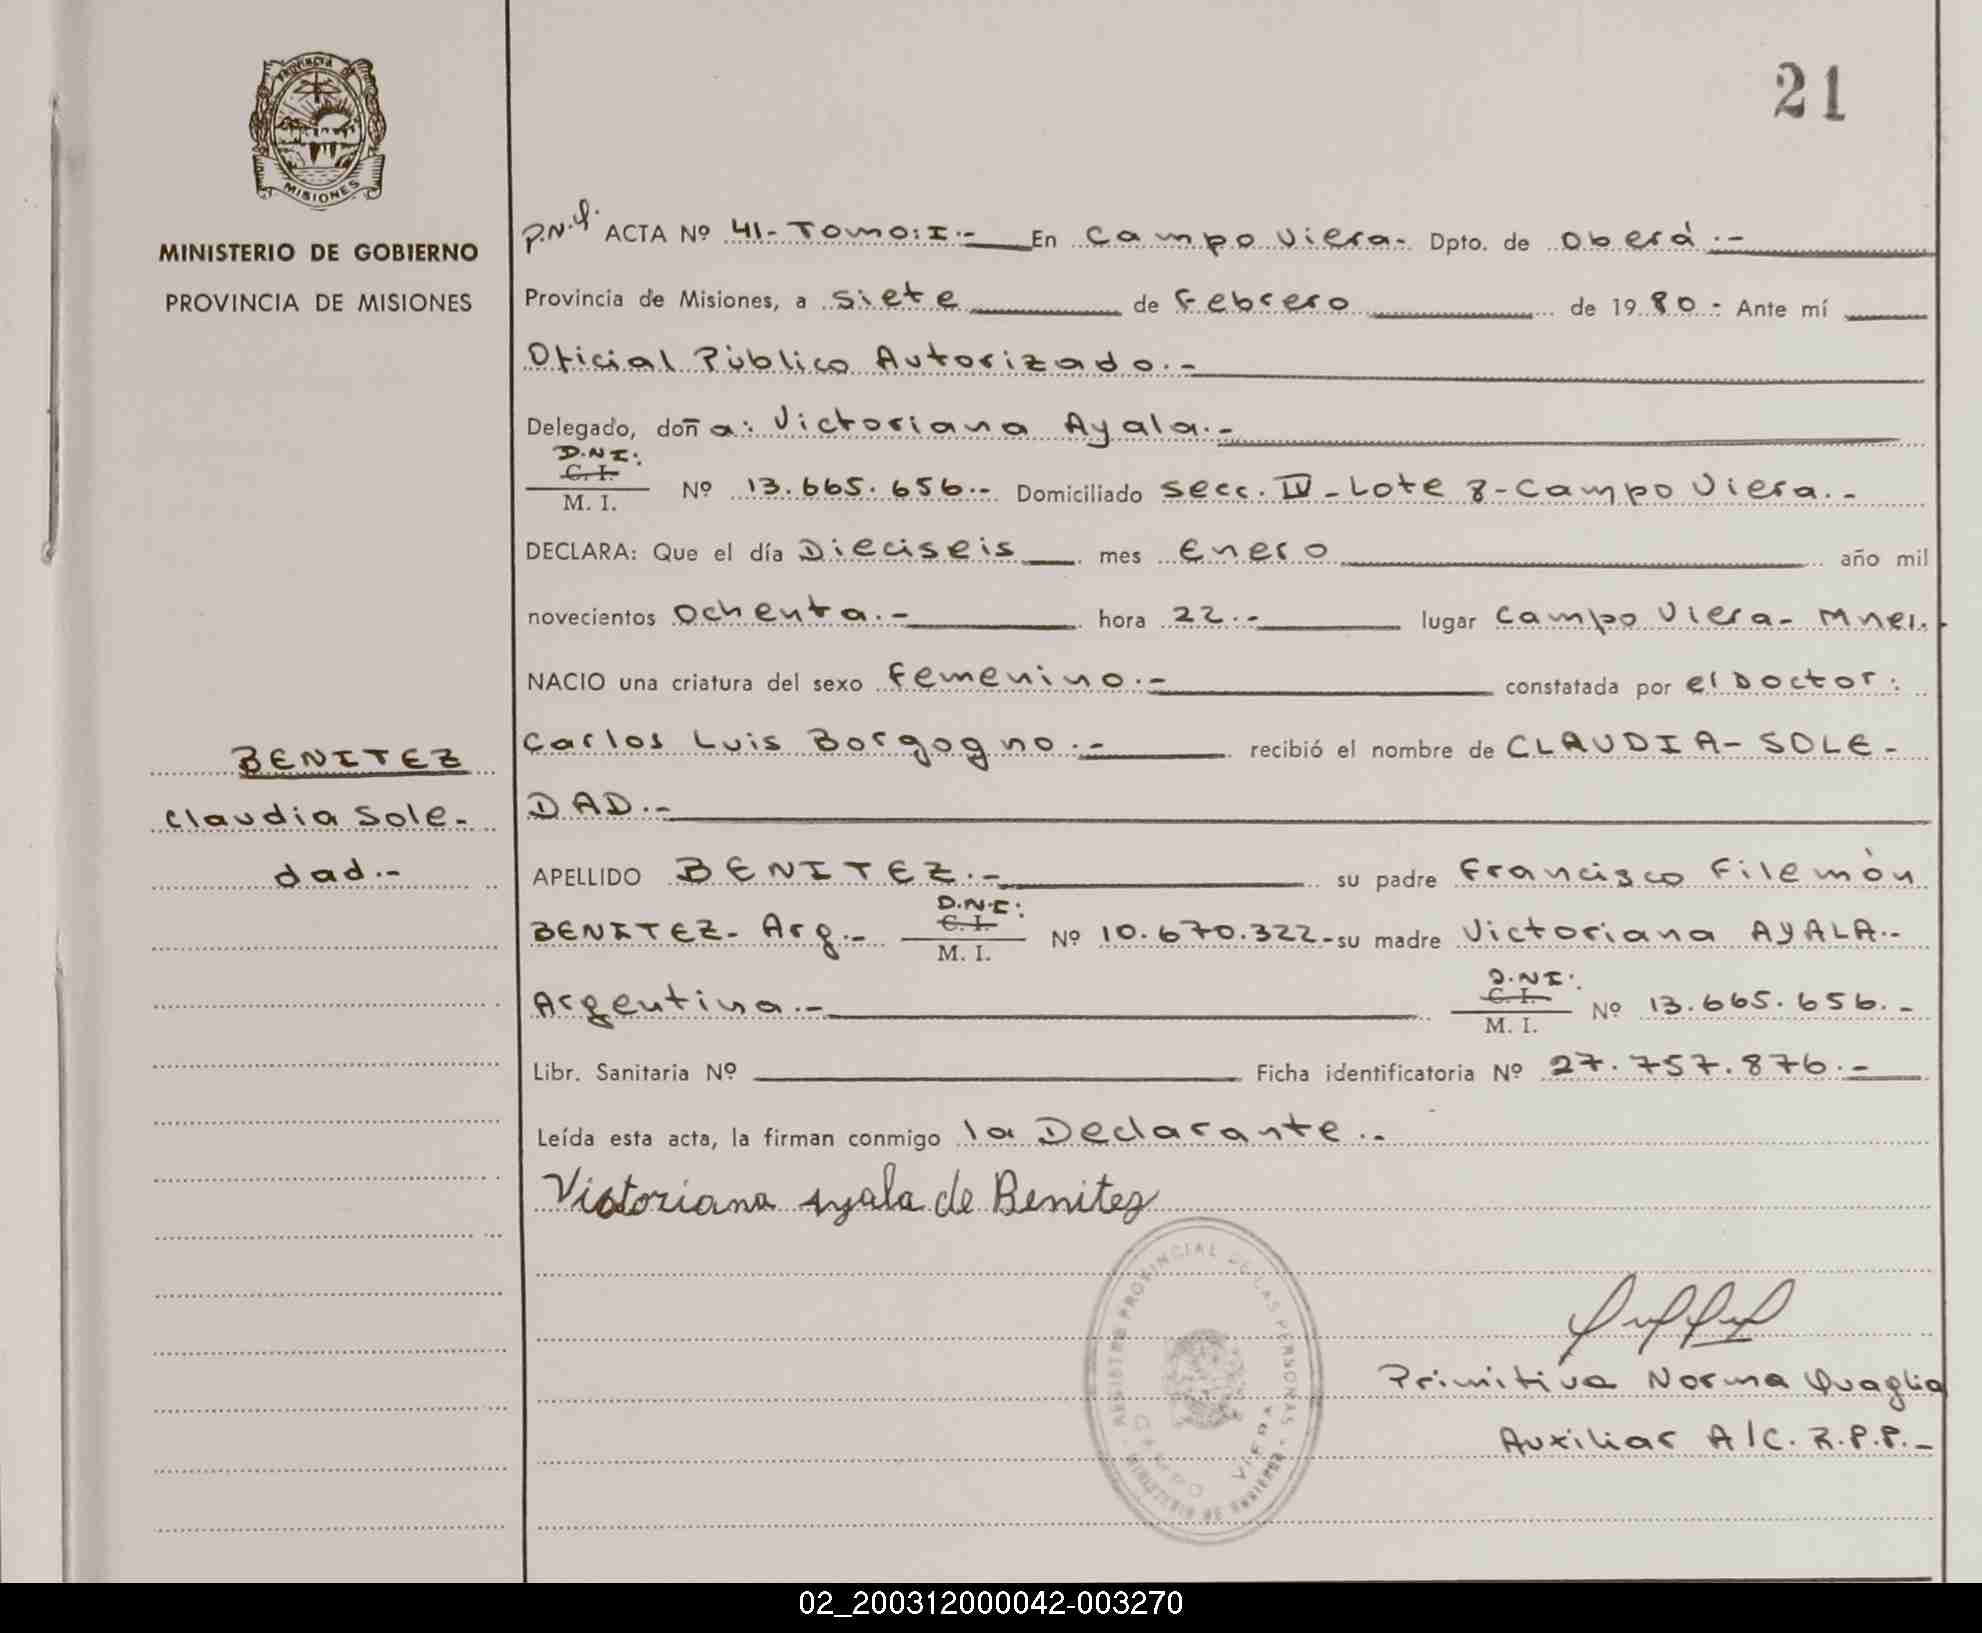 21
PROVINCIA DE
MISIONES
MINISTERIO DE GOBIERNO
PROVINCIA DE MISIONES
BENITEZ
Claudia Sole-
dad.-
P.N.Q. ACTA Nº 41-Tomo:I.- En Campo Viera- Dpto. de Oberá.-
Provincia de Misiones, a Siete de Febrero de 1980.- Ante mí
Oficial Público Autorizado.-
Delegado, doña: Victoriana Ayala.-
D.N.I:
C. I.
M. I. Nº 13.665.656.- Domiciliado Secc. IV-Lote 8-Campo Viera.-
DECLARA: Que el día Dieciseis mes Enero año mil
novecientos Ochenta.- hora 22.- lugar Campo Viera- Mnes.
NACIO una criatura del sexo Femenino.- constatada por el Doctor:
Carlos Luis Borgogno.- recibió el nombre de CLAUDIA-SOLE-
DAD.-
APELLIDO BENITEZ.- su padre Francisco Filemón
D.N.I:
C. I.
BENITEZ- Arg.- M. I. Nº 10.670.322-su madre Victoriana AYALA.-
D.NI:
C. I.
Argentina.- M. I. Nº 13.665.656.-
Libr. Sanitaria Nº Ficha identificatoria Nº 27.757.876.-
Leída esta acta, la firman conmigo la Declarante.-
Victoriana Ayala de Benitez
REGISTRO PROVINCIAL DE LAS PERSONAS
CAMPO VIERA
MINISTERIO DE GOBIERNO
Primitiva Norma Quaglia
Auxiliar A/C. R.P.P.-
02_200312000042-003270